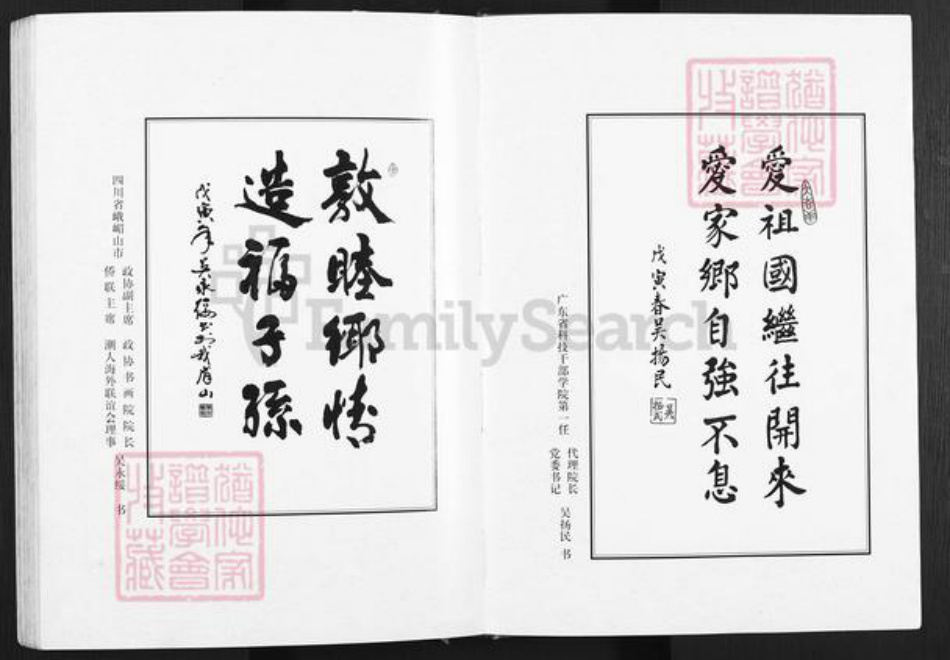 愛祖國繼往開來
愛家鄉自強不息
戊寅春吴揚民
广东省科技干部学院第一任
代理院长
党委书记
吴扬民 书
敦睦鄉情
造福子孫
戊寅年吴永
四川省峨嵋山市
政协副主席
侨联主席
政协书画院院长
潮人海外联谊会理事
吴永绥 书
FamilySearch